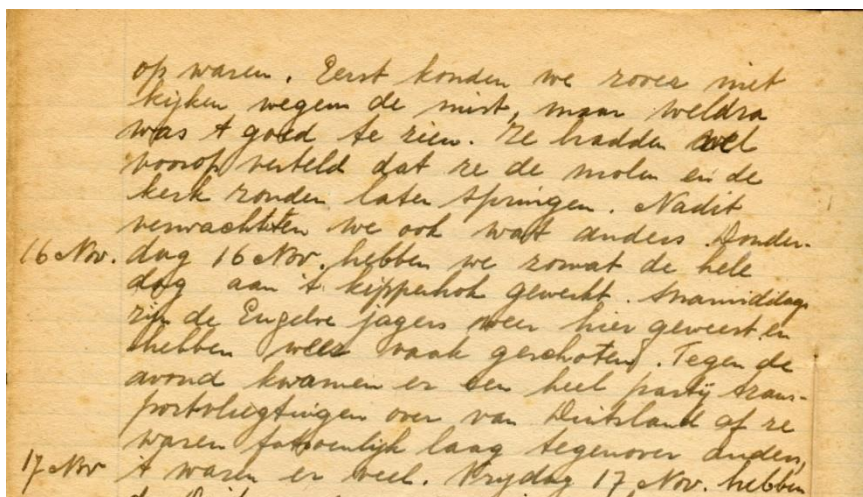 op waren. Eerst konden we zover niet
kijken wegens de mist, maar weldra
was 't goed te zien. Ze hadden wel
voorop verteld dat ze de molen en de
kerk zouden laten springen. Nadit
verwachtten we ook wat anders. Donder-
16 Nov. dag 16 Nov. hebben we zowat de hele
dag aan 't kippenhok gewerkt. snamiddags
zijn de Engelse jagers weer hier geweest en
hebben weer vaak geschoten. Tegen de
avond kwamen er een heel partij trans-
portvliegtuigen over van Duitsland af ze
waren fatsoenlijk laag tegenover anders,
17 Nov 't waren er veel. Vrydag 17 Nov. hebben